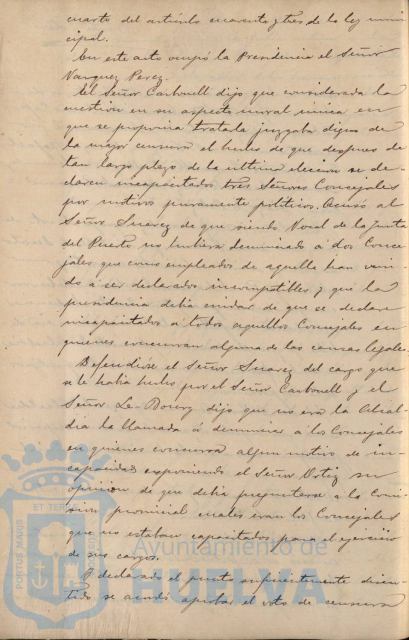 cuarto del artículo cuarenta y tres de la ley muni
cipal.
En este acto ocupó la Presidencia el Señor
Vazquez Perez.
El Señor Carbonell dijo que considerada la
cuestion en su aspecto moral única en
que se proponia tratarla juzgaba digno de
la mayor censura el hecho de que despues de
tan largo plazo de la última eleccion se de-
claren incapacitados tres Señores Concejales
por motivos puramente politicos. Acusó al
Señor Suarez de que siendo Vocal de la Junta
del Puerto no hubiera denunciado á dos Conce
jales que como empleados de aquella han veni-
do á ser declarados incompatibles y que la
presidencia debia cuidar de que se declaren
incapacitados á todos aquellos Concejales en
quienes concurran alguna de las causas legales.
Defendióse el Señor Suarez del cargo que
se le habia hecho por el Señor Carbonell y el
Señor Le-Bourg dijo que no era la Alcal-
dia la llamada á denunciar á los Concejales
en quienes concurra algun motivo de in-
capacidad exponiendo el Señor Ortiz su
opinion de que debia preguntarse á la Comi
sion provincial cuales eran los Concejales
que no estaban capacitados para el ejercicio
de sus cargos.
Y declarado el punto suficientemente discu-
tido se acordó aprobar el voto de censura
PORTUS MARIS
ET TERRAE
Ayuntamiento de
HUELVA